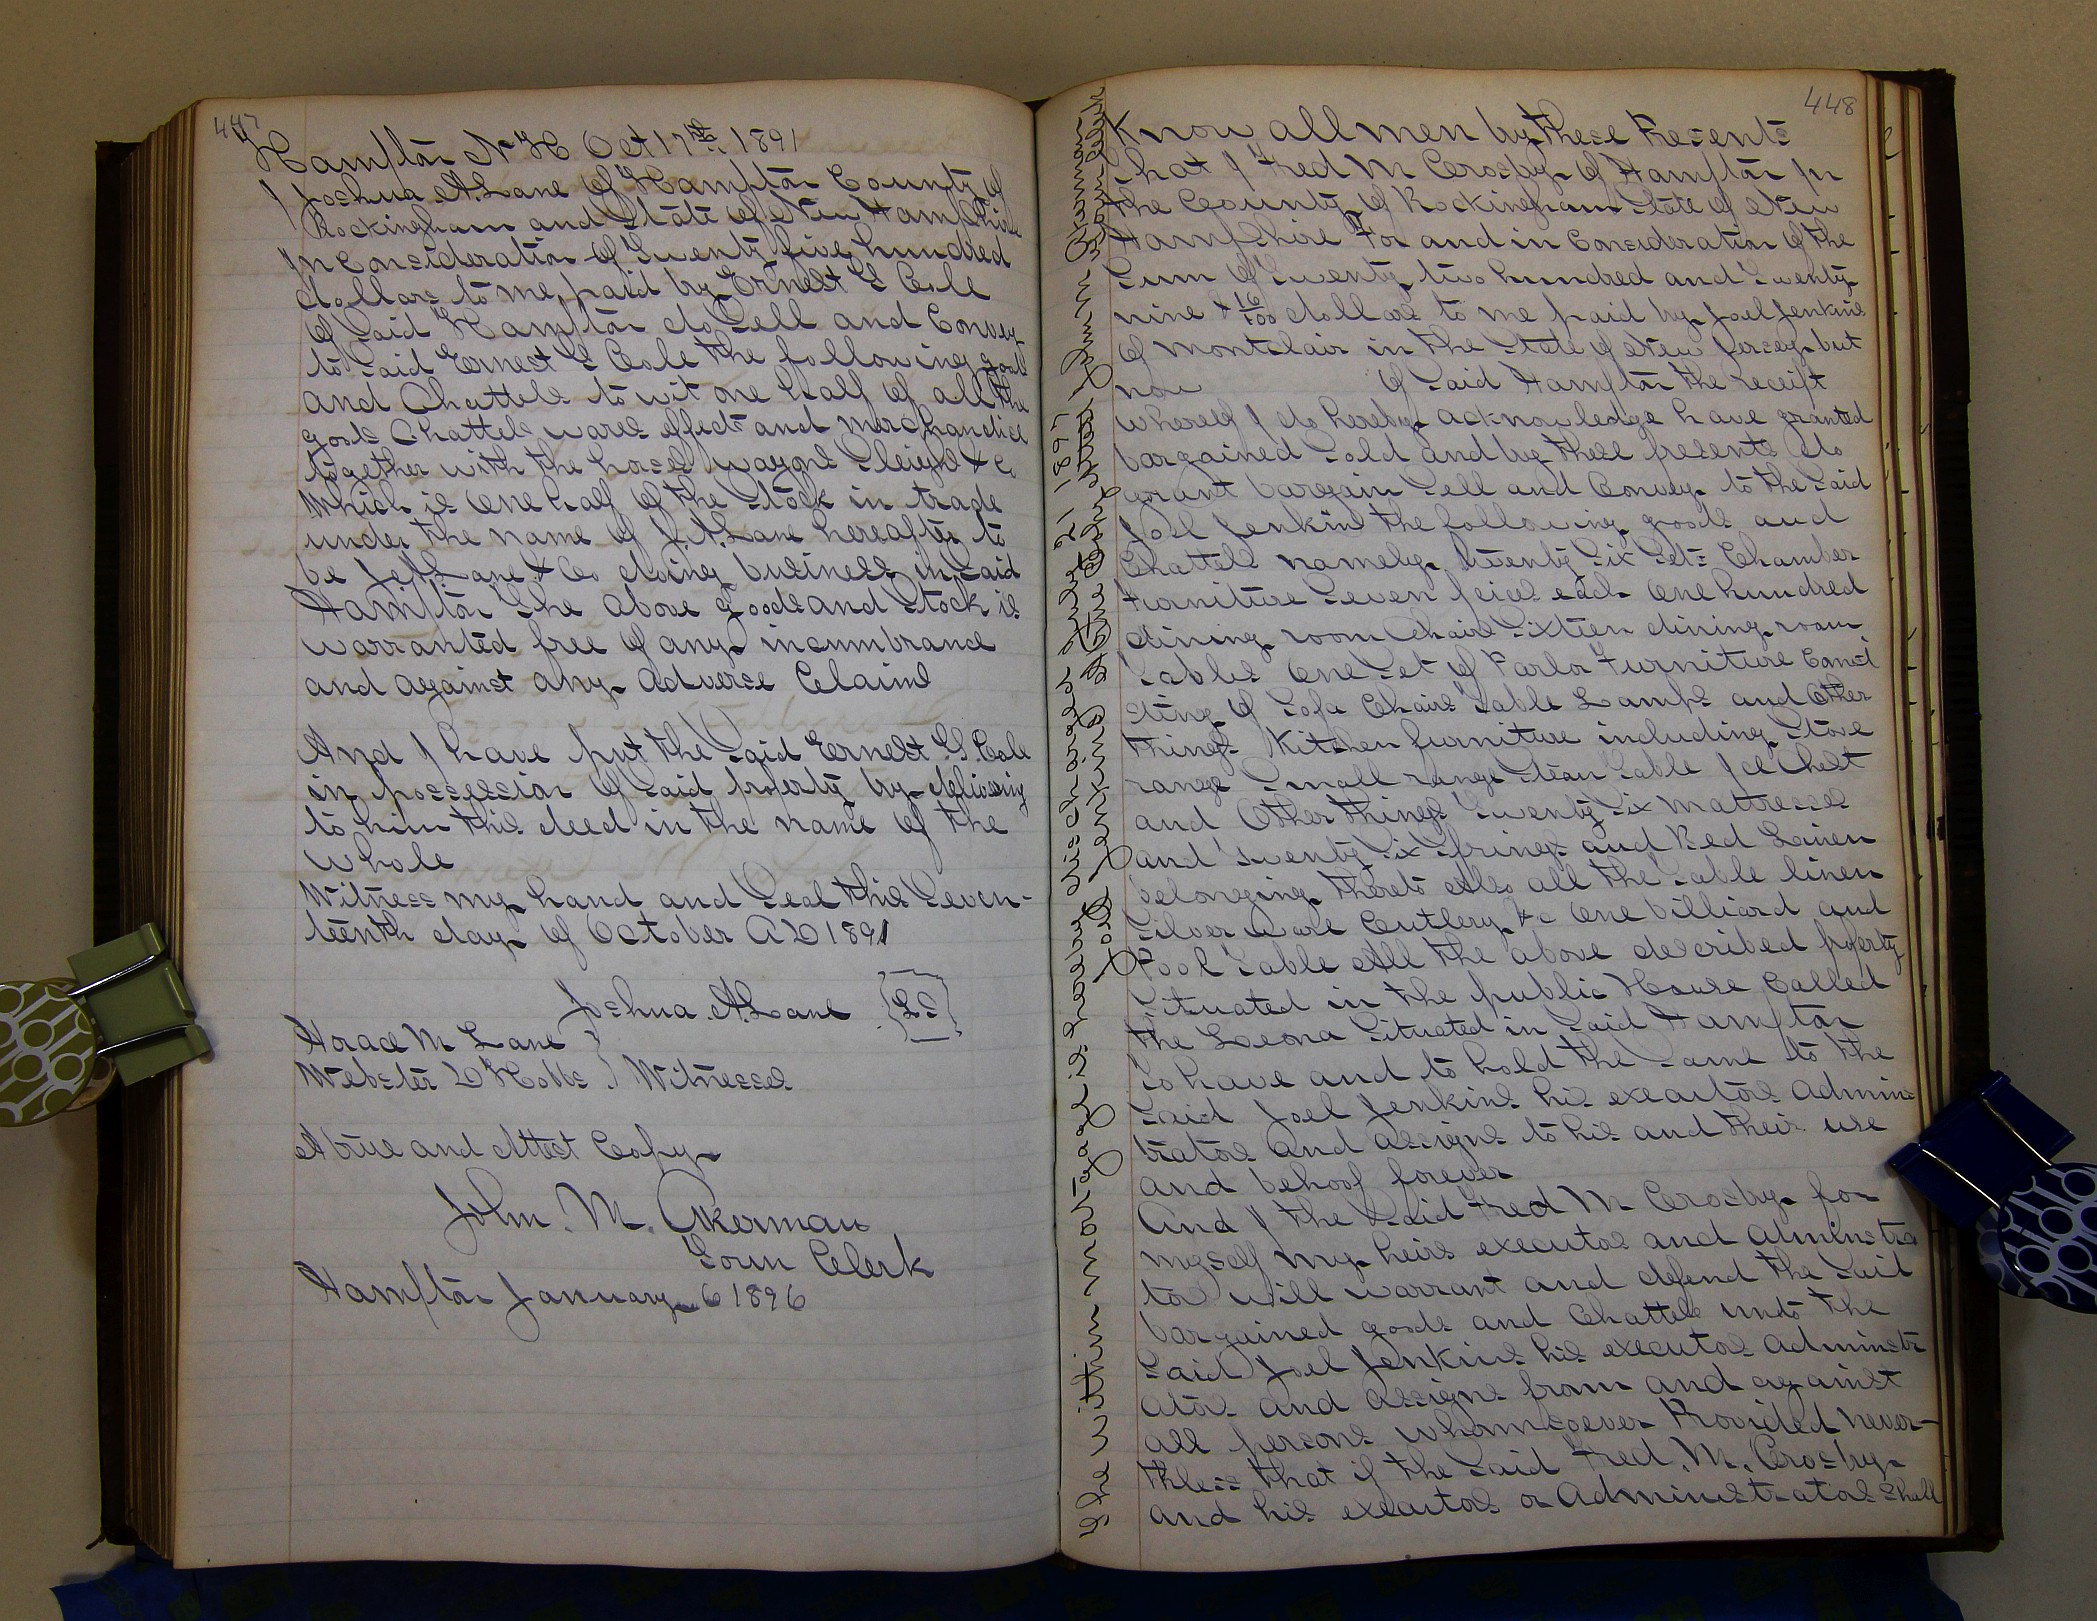 447
Hampton N H Oct 17th 1891
I Joshua A. Lane of Hampton County of
Rockingham and State of New Hampshire
In consideration of Twenty five hundred
dollars to me paid by Ernest G Cole
of said Hampton do sell and Convey
to said Ernest G Cole the following goods
and Chattels to wit one half of all the
goods Chattels wares effects and merchandise
together with the horses wagons sleighs & c
which is one half of the stock in trade
under the name of J. A. Lane hereafter to
be J. A. Lane & Co doing business in said
Hampton The above goods and stock is
warranted free of any incumbrance
and against any adverse Claims
And I have put the said Ernest G. Cole
in possession of said property by delivering
to him this deed in the name of the
whole
Witness my hand and seal this seven-
teenth day of October A D 1891
Joshua A. Lane {LS}
Horace M Lane }
Webster D Hobbs } Witnesses
A true and Attest Copy
John. M. Akerman
Town Clerk
Hampton January 6 1896
448
Know all men by these Presents
that I Fred M Crosby of Hampton In
the County of Rockingham State of New
Hampshire For and in consideration of the
sum of Twenty two hundred and Twenty
nine & 16/100 dollars to me paid by Joel Jenkins
of Montclair in the State of New Jersey but
now of said Hampton the receipt
whereof I do hereby acknowledge have granted
bargained sold and by these presents do
grant bargain sell and Convey to the said
Joel Jenkins the following goods and
Chattels namely, twenty six sets Chamber
furniture seven peices each one hundred
dining room Chairs Sixteen dining room
Tables One Set of Parlor Furniture Consi
sting of Sofa Chairs Table Lamps and Other
things Kitchen furniture including Stove
range small range steam table Ice Chest
and Other things Twenty six mattresses
and twenty six springs and Bed Linen
belonging thereto Also all the table linen
Silver ware Cutlery &c One billiard and
Pool Table All the above described property
situated in the public House Called
the Leona situated in said Hampton
To have and to hold the same to the
said Joel Jenkins his executors adminis
trators and assigns to his and their use
and behoof forever
And I the said Fred M Crosby for
myself my heirs executos and adminstra
tos will warrant and defend the said
bargained goods and Chattels unto the
said Joel Jenkins his executos adminstr
ators and assigns from and against
all persons whomsoever Provided never-
thless that if the said Fred. M. Crosby
and his executos or Administrators shall
The within mortgage is hereby discharged August 21 1897 Attest John M Akerman
Joel Jenkins A true Copy Town Clerk